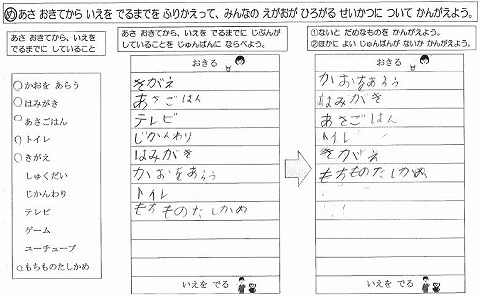 め あさ おきてから いえを でるまでを ふりかえって、みんなの えがおが ひろがる せいかつに ついて かんがえよう。
あさ おきてから、いえを
でるまでに していること
かおを あらう
はみがき
あさごはん
トイレ
きがえ
しゅくだい
じかんわり
テレビ
ゲーム
ユーチューブ
もちものたしかめ
あさ おきてから、いえを でるまでに じぶんが
していることを じゅんばんに ならべよう。
おきる
きがえ
あさごはん
テレビ
じかんわり
はみがき
かおをあらう
トイレ
もちものたしかめ
いえを でる
①ないと だめなものを かんがえよう。
②ほかに よい じゅんばんが ないか かんがえよう。
おきる
かおをあらう
はみがき
あさごはん
トイレ
きがえ
もちものたしかめ
いえを でる